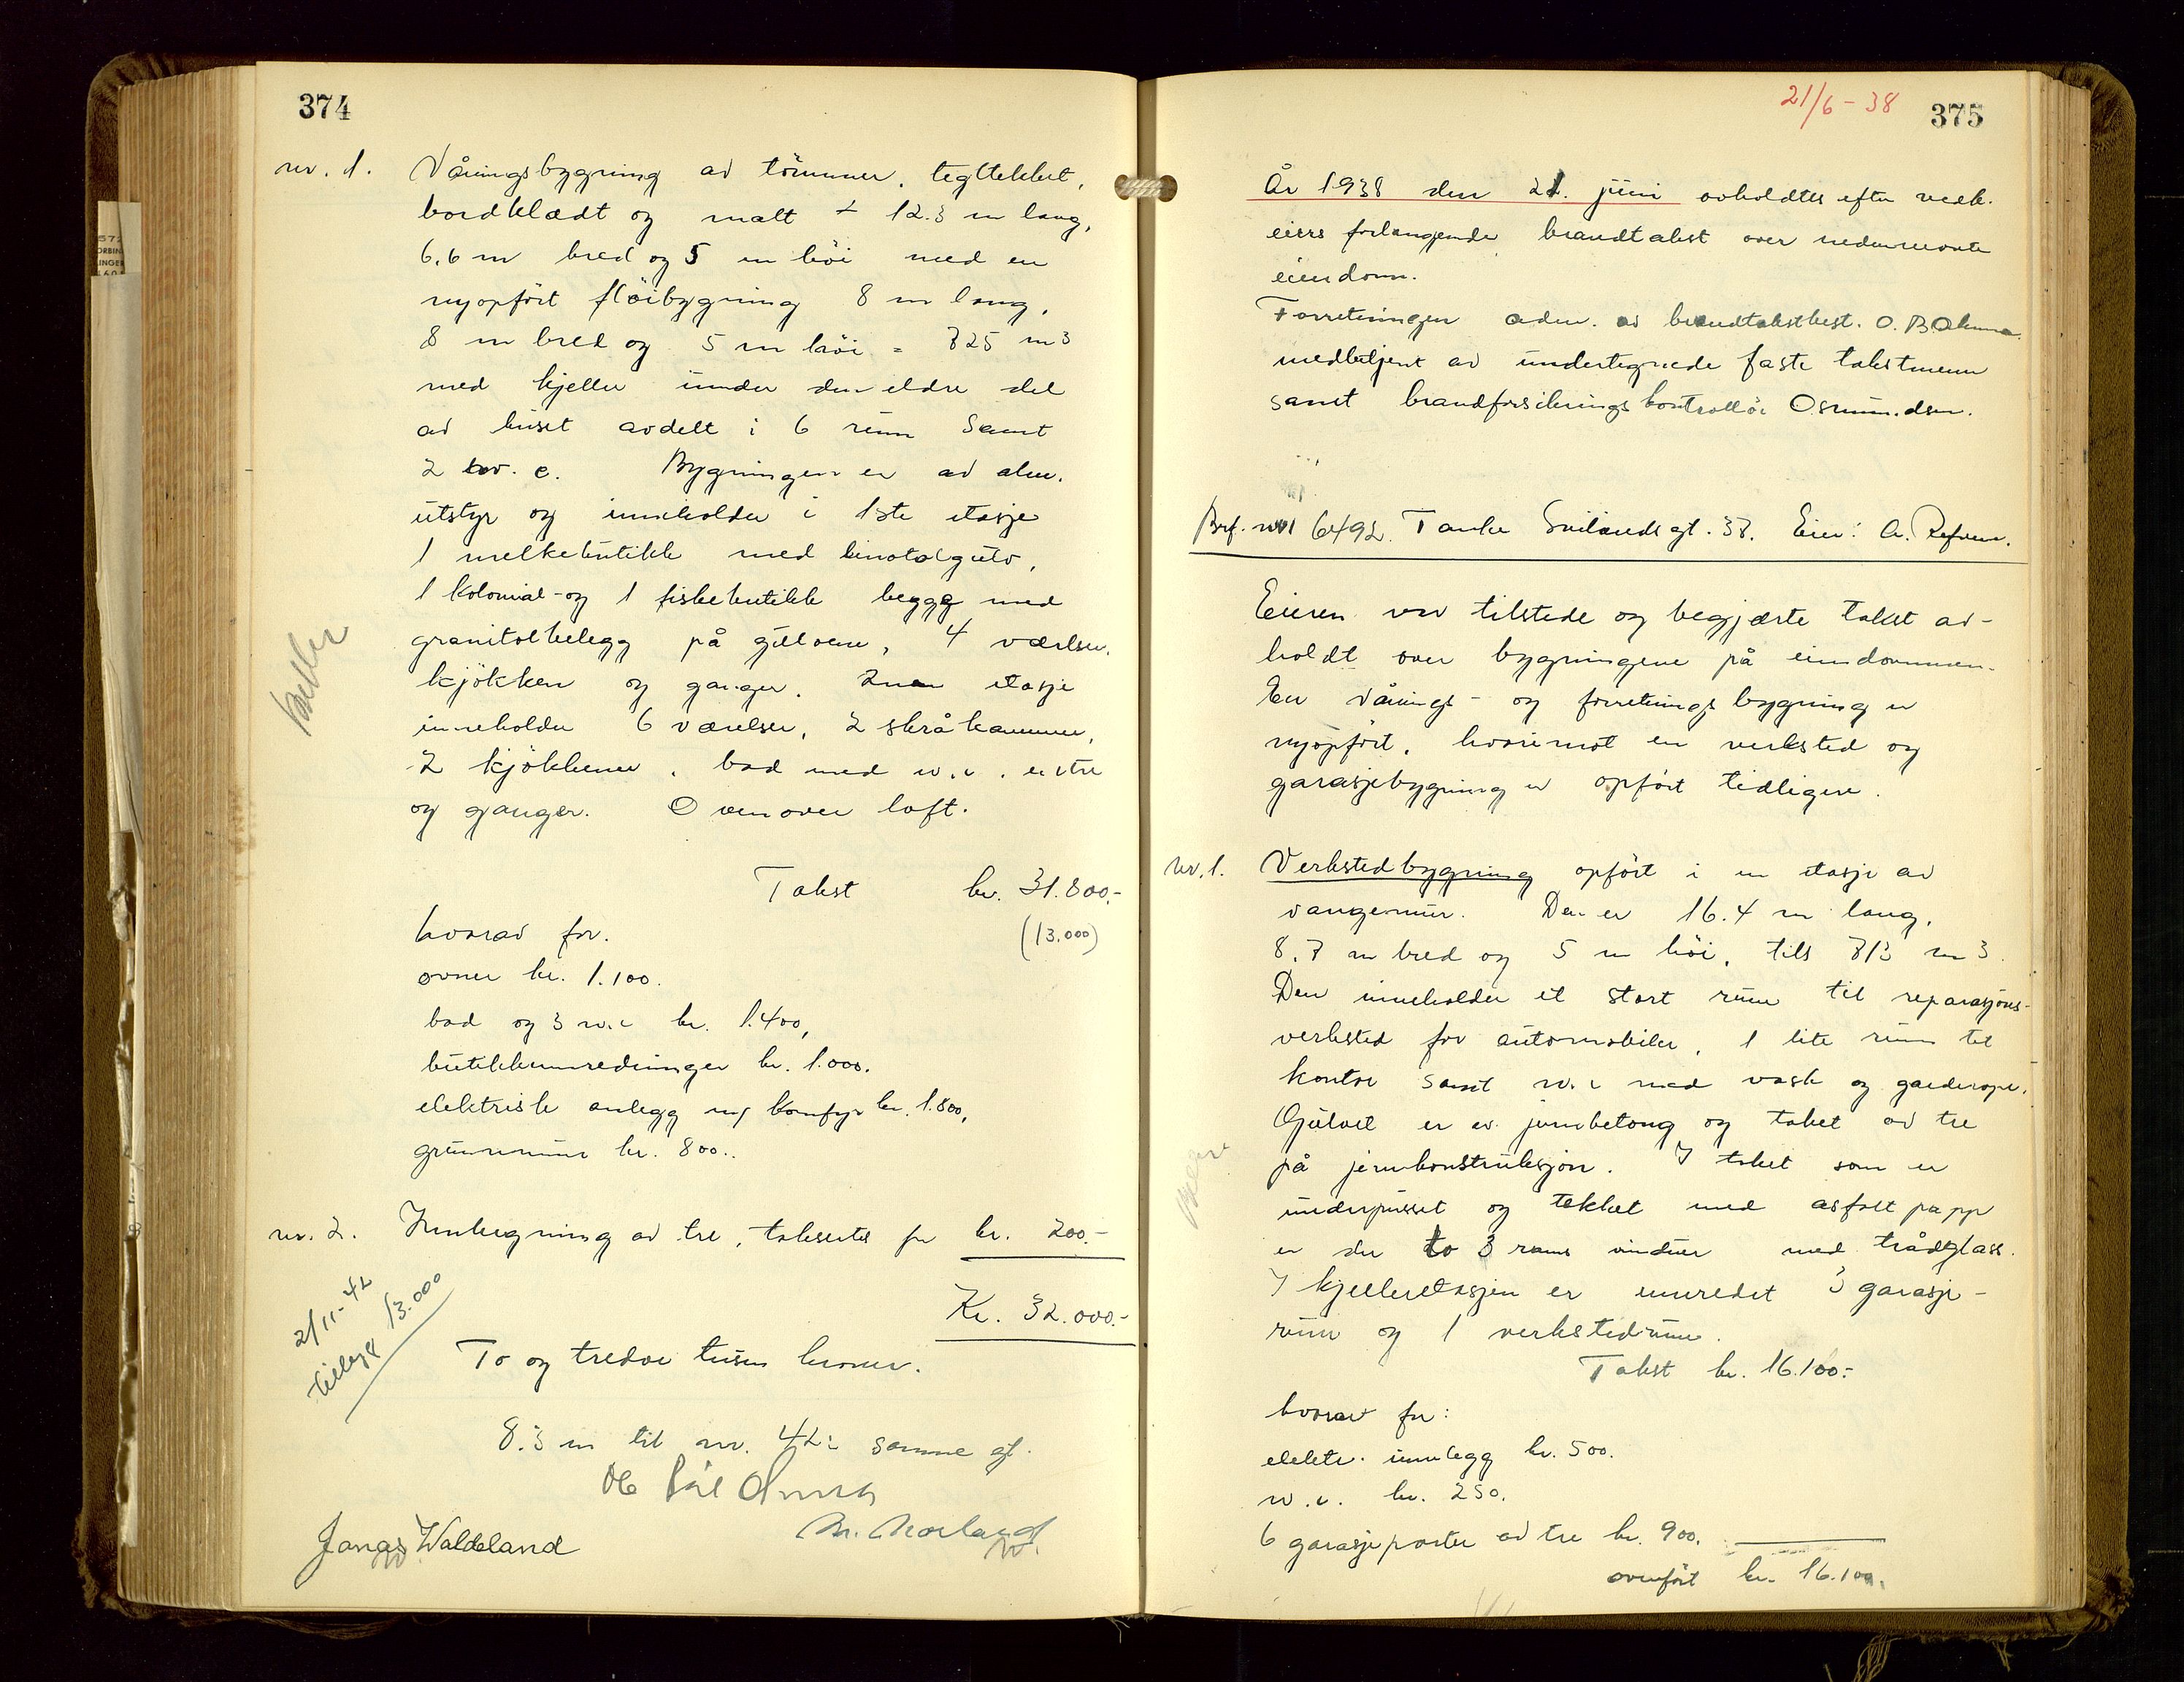 374
nr. 1. Våningsbygning av tömmer, tegltekket,
bordklædt og malt ÷ 12.3 m lang,
6,6 m bred og 5 m höi med en
nyopfört flöibygning 8 m lang,
8 m bred og 5 m höi = 725 m3
med kjeller under den eldre del
av huset avdelt i 6 rum samt
2 w. c. Bygningen er av alm.
utstyr og inneholder i 1ste etasje
1 melkebutikk med linotolgulv,
1 kolonial- og 1 fiskebutikk begge med
granitolbelegg på gulvene, 4 værelser,
kjökken og ganger. 2nen etasje
inneholder 6 værelser, 2 skråkammer,
2 kjökkener, bad med w.c. entre
og ganger. Ovenover loft.
Takst kr. 31.800.-
hvorav for. (13.000)
ovner kr. 1.100.
bad og 3 w.c kr. 1.400,
butikkinnredninger kr. 1.000.
elektrisk anlegg m/ komfyr kr. 1.800,
grunnmur kr. 800..
nr. 2. Innbygning av tre, takseres for kr. 200.-
Kr. 32.000.-
2/11-42
tillegg 13.000
To og tredve tusen kroner.
8.3 m til nr. 42 samme gt.
M. Morland
Jonas Waldeland
21/6-38
375
År 1938 den 21. juni avholdtes efter vedk.
eiers forlangende brandtakst over nedennevnte
eiendom.
Forretningen adm. av brandtakstbest. O. B.
medbetjent av undertegnede faste takstmenn
samt brandforsikringskontrollör Osmundsen.
Brf. nr 6492. Tanke Svilands gt. 38. Eier: A. Refvem.
Eieren var tilstede og begjærte takst av-
holdt over bygningene på eiendommen.
En vånings- og forretningsbygning er
nyopfört, hvorimot en verksted og
garasjebygning er opfört tidligere.
nr. 1. Verkstedbygning opfört i en etasje av
vangemur. Den er 16.4 m lang,
8,7 m bred og 5 m höi, tils 713 m3.
Den inneholder et stort rum til reparasjons-
verksted for automobiler, 1 lite rum til
kontor samt w.c med vask og garderope.
Gulvet er av jernbetong og taket av tre
på jernkonstruksjon. I taket som er
underpusset og tekket med asfalt papp
er der to 3 rams vinduer med trådglass.
I kjelleretasjen er innredet 3 garasje-
rum og 1 verkstedrum.
Takst kr. 16.100.-
hvorav for:
elektr. innlegg kr. 500.
w.c. kr. 250.
6 garasjeporter av tre kr. 900.
overfört kr. 16.100.